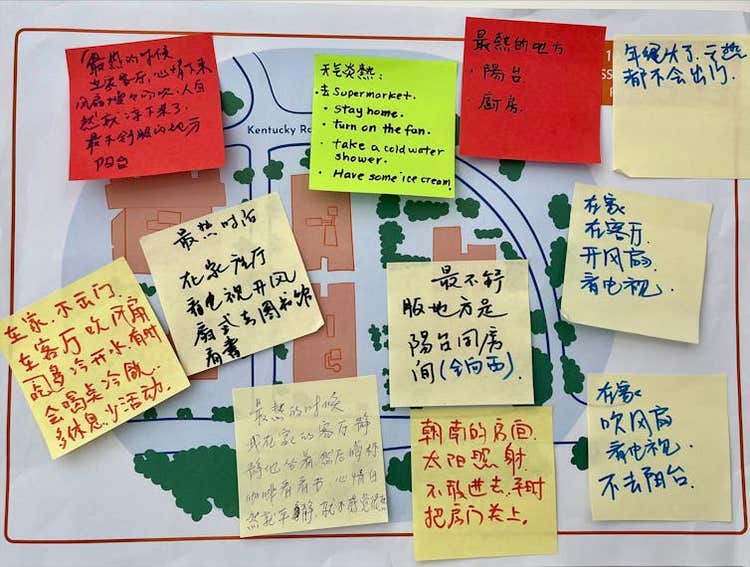 最热的时候
在家客厅，心情下来
风扇慢々的吹，人自
然就凉下来了．
最不舒服的地方
阳台
天气炎熱：
去 Supermarket.
stay home.
turn on the fan.
take a cold water
shower.
Have some ice cream.
最熱的地方
陽台．
廚房．
年纪大了，天热
都不会出门．
Kentucky Ro
最热时治
在家客厅
看电视开风
扇或去图书馆
看書
在家
在客厅．
开风扇．
看电视．
在家，不出门．
在客厅吹风扇
喝多冷开水，有时
会喝点冷饮．
多休息，少活动．
最不舒
服地方是
陽台同房
间(全向西)．
最热的时候
我在家的客厅静
静地坐着然后喝杯
咖啡看看书，心情自
然就平静，就不感觉很热
朝南的房间．
太阳照射．
不敢进去，平时
把房门关上．
在家
吹风扇
看电视．
不去阳台．